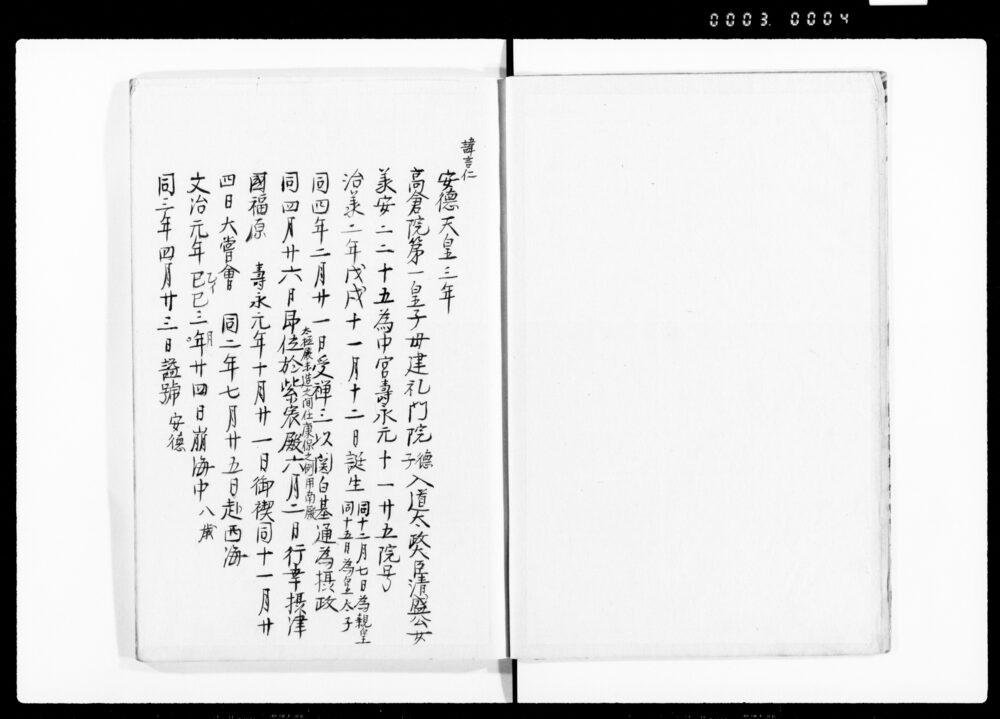 0003. 0004
諱言仁
安德天皇三年
高倉院第一皇子母建礼門院德子入道太政大臣清盛公女
承安二二十五為中宮壽永元十一廿五院号
治承二年戊戌十一月十二日誕生同十二月七日為親皇同十五日為皇太子
同四年二月廿一日受禅三以関白基通為摂政
同四月廿六日即位於紫宸殿太極殿未造之間任康保之例用南殿六月二日行幸摂津
國福原 壽永元年十月廿一日御禊同十一月廿
四日大嘗會 同二年七月廿五日赴西海
文治元年乙イ巳巳三月年廿四日崩海中八歳
同三年四月廿三日謚號安德